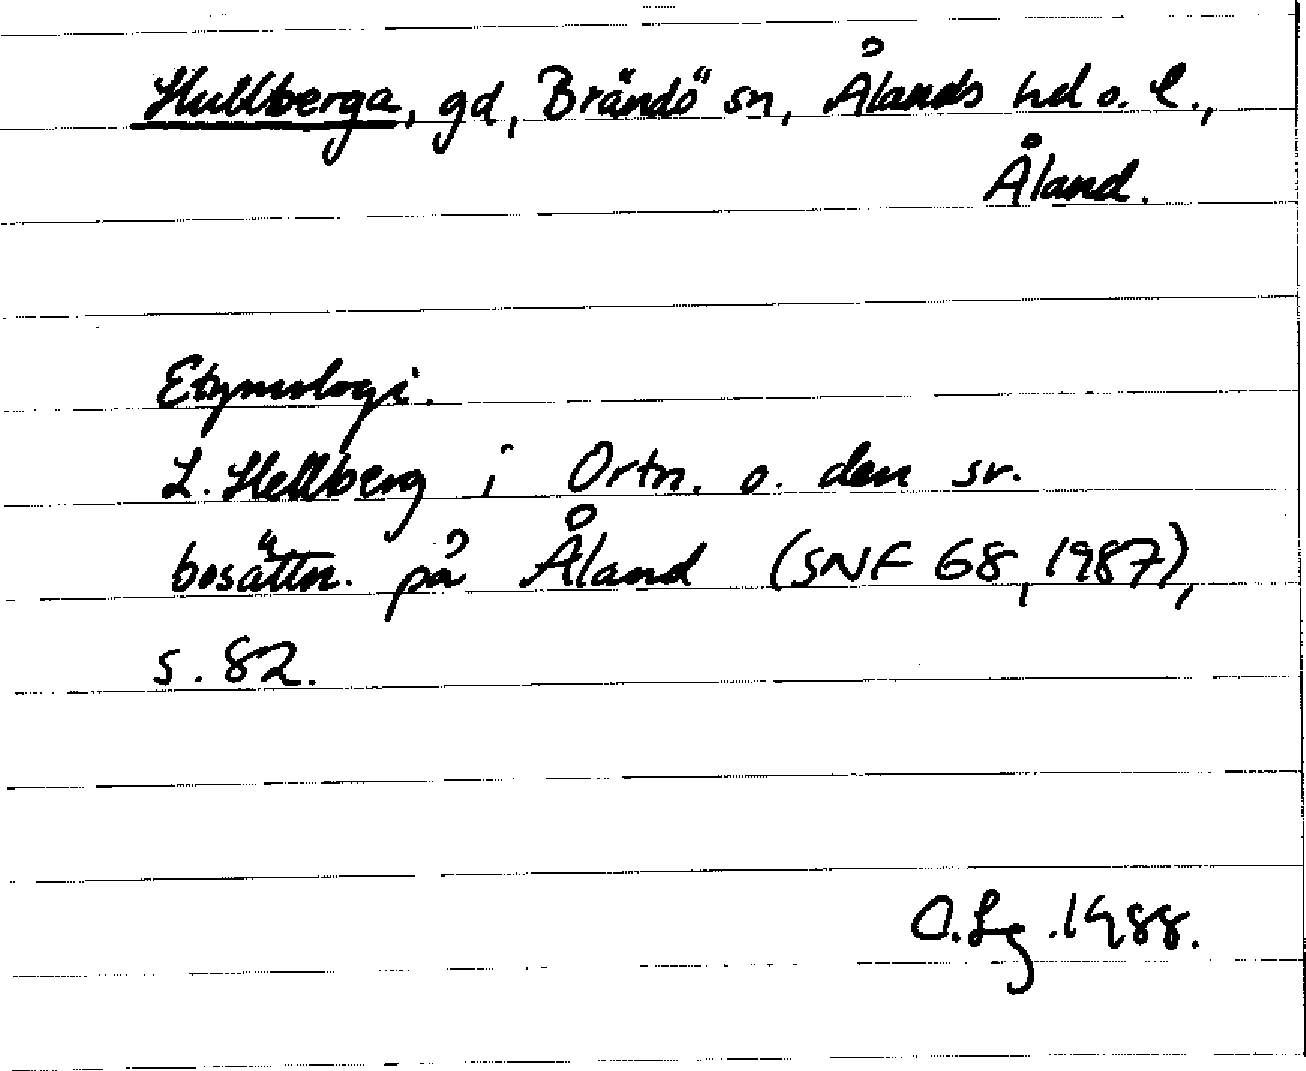 Hullberga, gd, Brändö sn, Ålands hd o. l.,
Åland.
Etymologi.
L. Hellberg i Ortn. o. den sv.
bosättn. på Åland (SNF 68, 1987),
s. 82.
O. Lg. 1988.